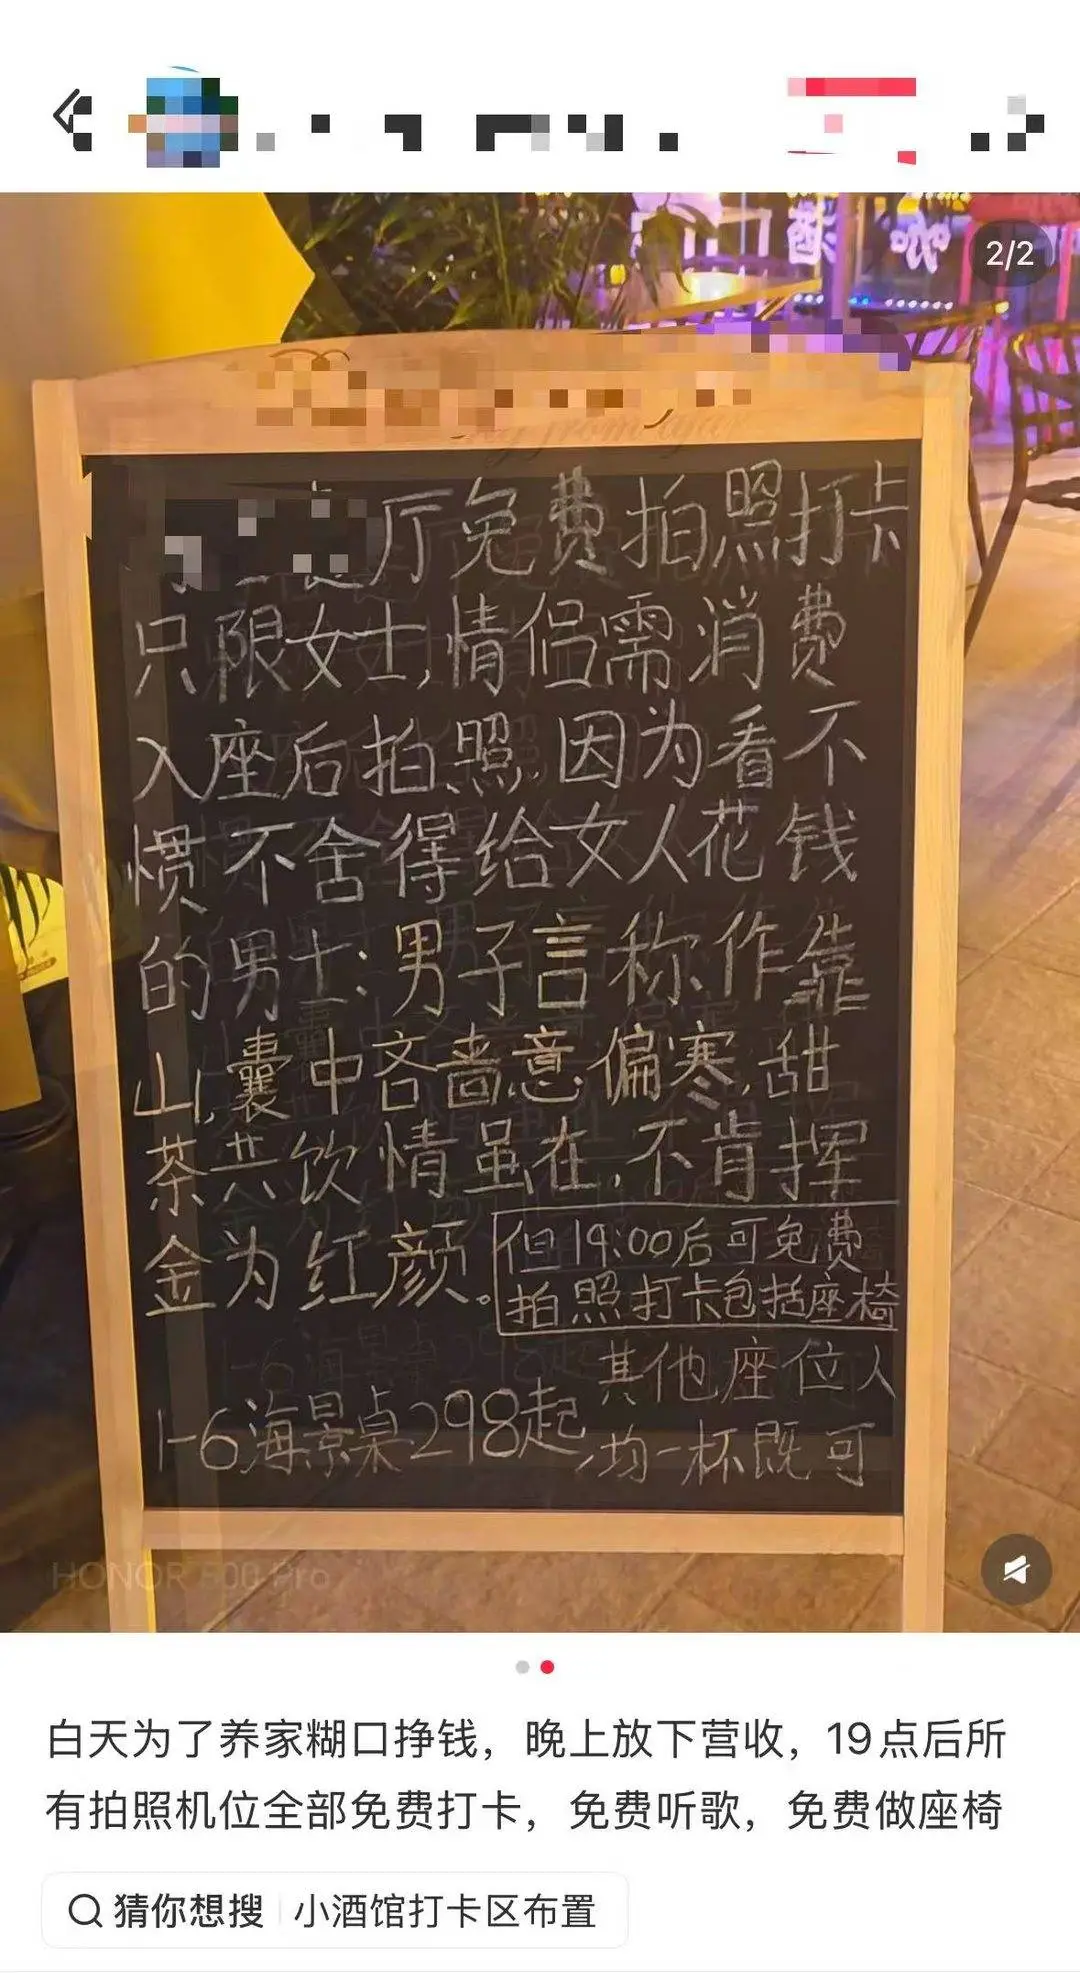 2/2
厅免费拍照打卡
只限女士,情侣需消费
入座后拍照.因为看不
惯不舍得给女人花钱
的男士:男子言称作靠
山,囊中吝啬意偏寒,甜
茶共饮情虽在,不肯挥
金为红颜。
但19:00后可免费
拍照打卡包括座椅
1-6海景桌298起,
其他座位人
均一杯既可
HONOR 500 Pro
白天为了养家糊口挣钱，晚上放下营收，19点后所
有拍照机位全部免费打卡，免费听歌，免费做座椅
猜你想搜 小酒馆打卡区布置